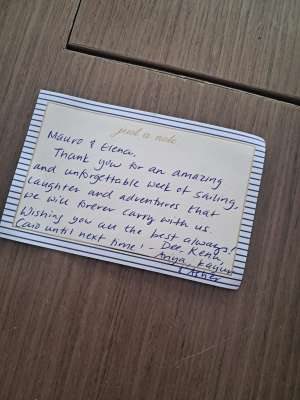 just a note
Mauro & Elena,
Thank you for an amazing
and unforgettable week of sailing,
laughter and adventures that
we will forever carry with us.
Wishing you all the best always!
Ciao until next time! - Dee, Kena,
Anya, Kayur